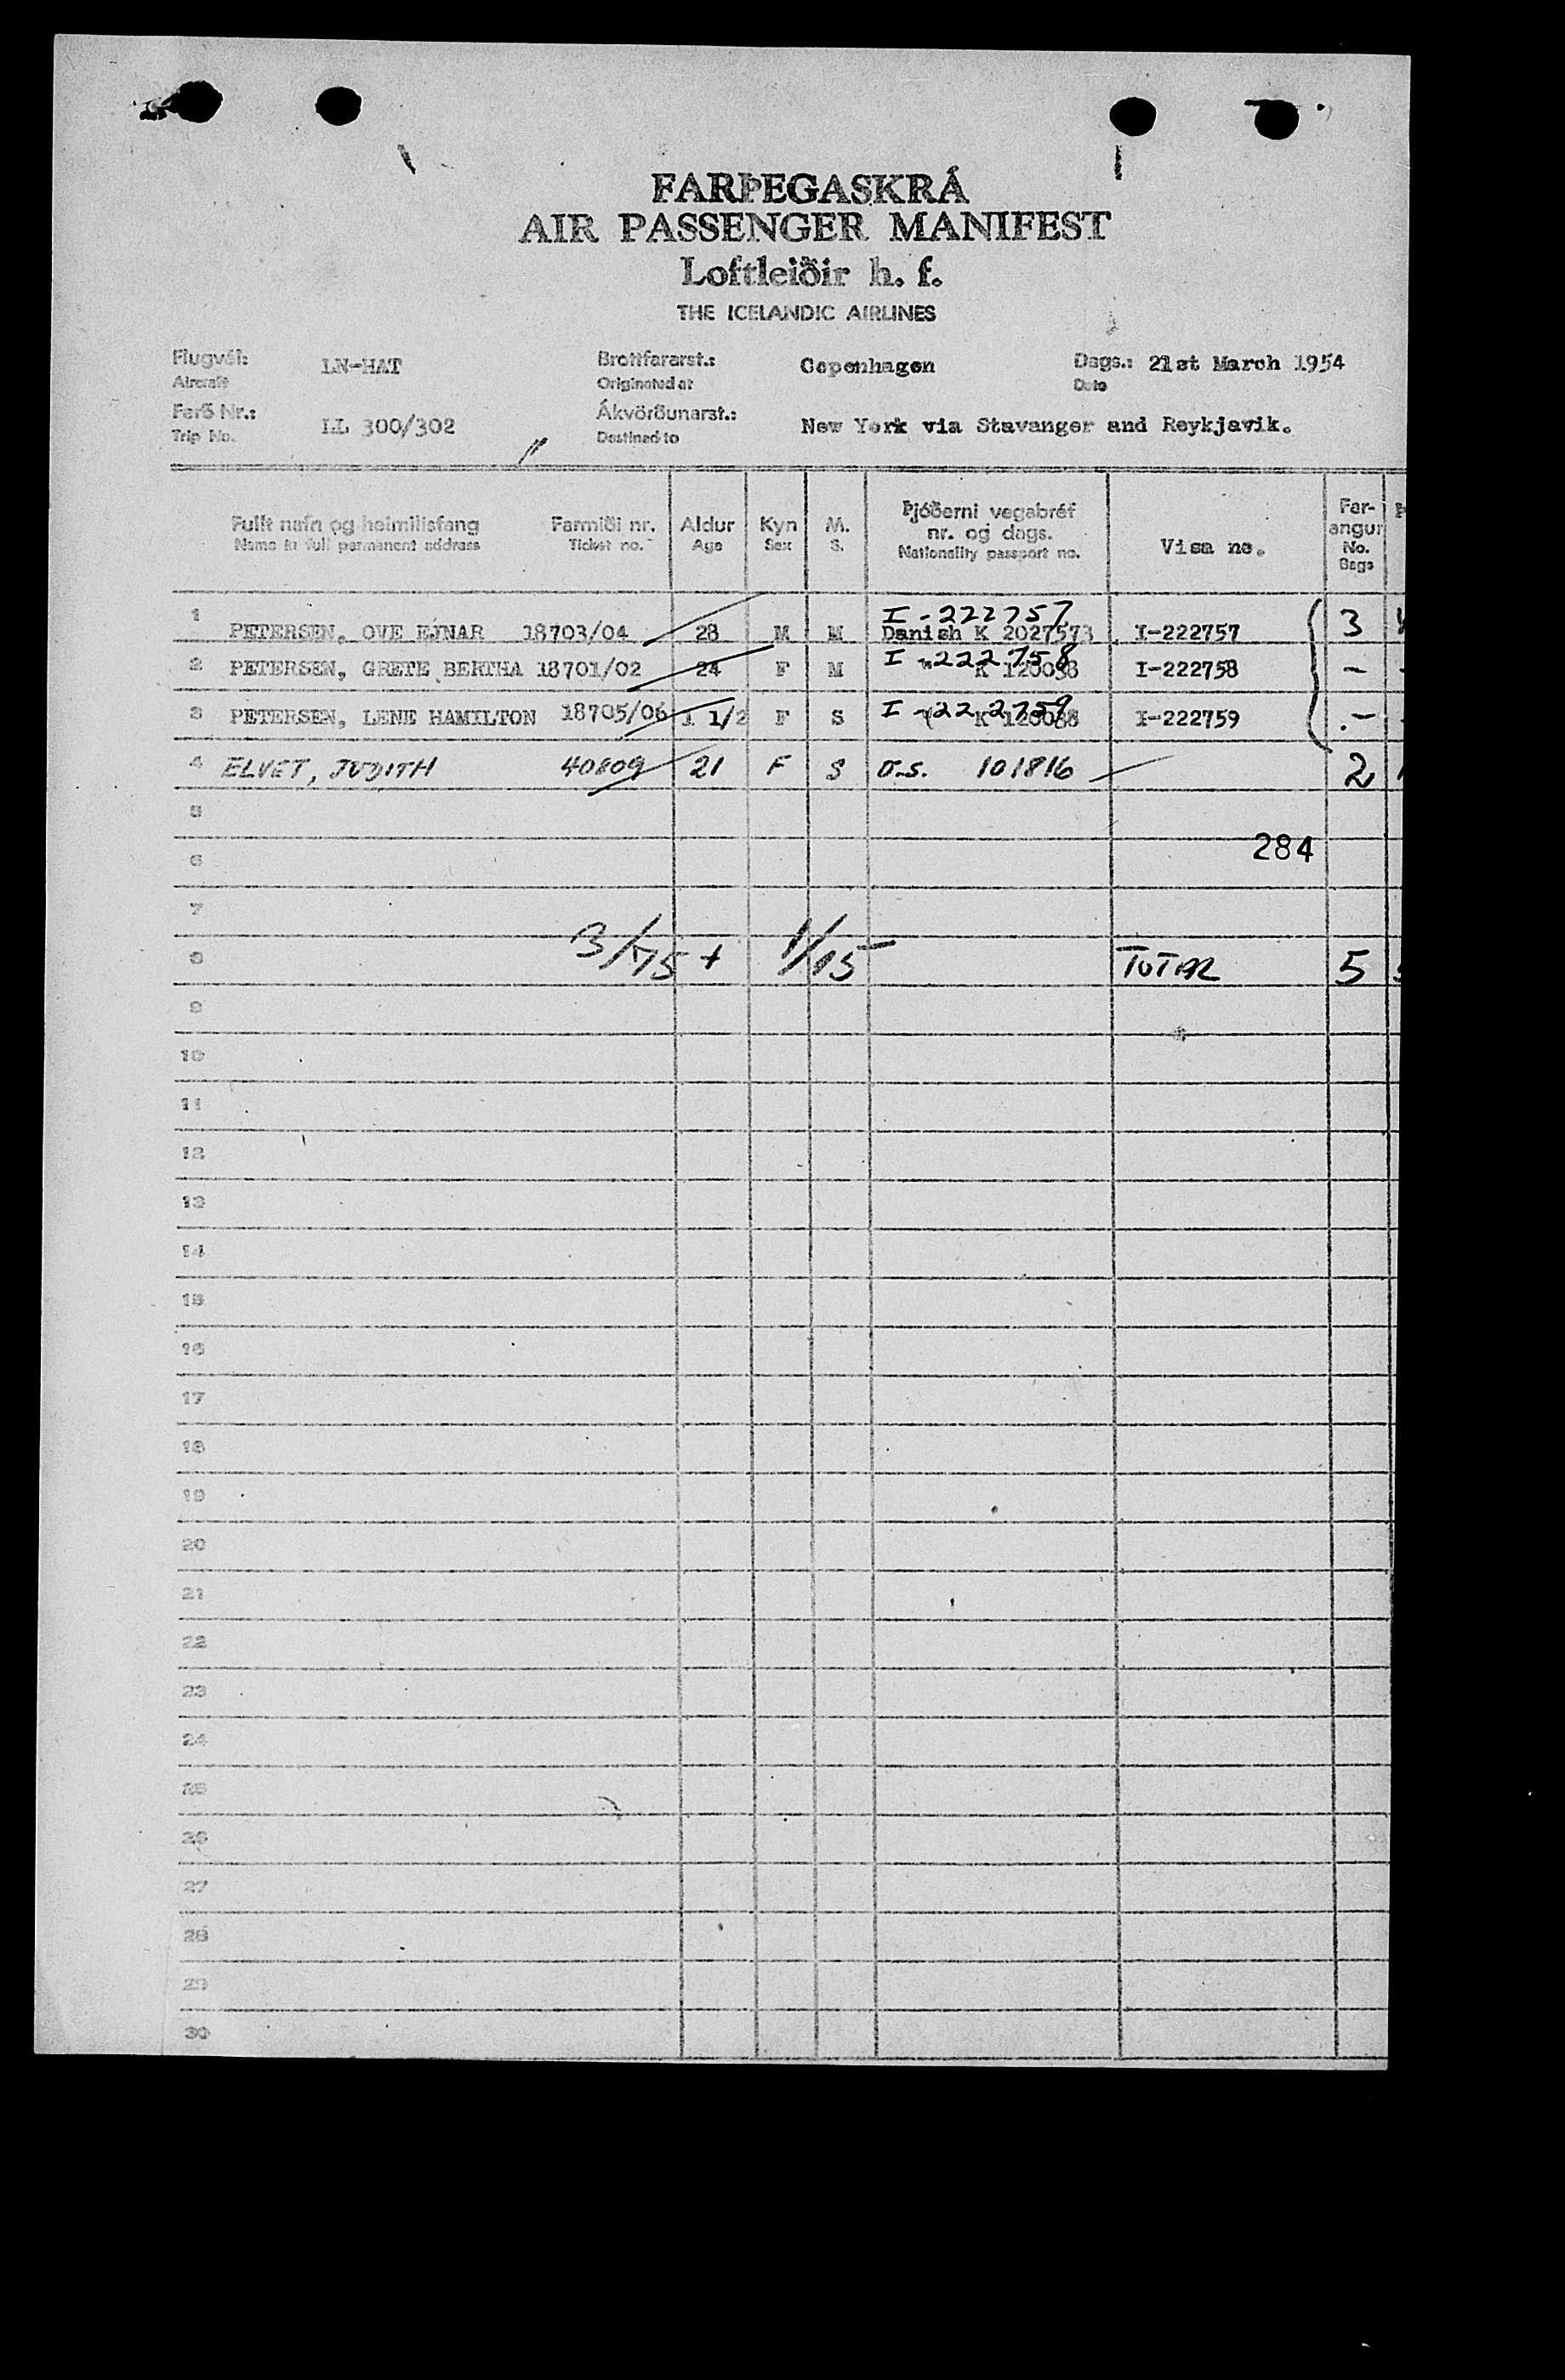 FARÞEGASKRÁ
AIR PASSENGER MANIFEST
Loftleiðir h. f.
THE ICELANDIC AIRLINES
Flugvél: LN-HAT Brottfararst.: Copenhagen Dags.: 21st March 1954
Aircraft Originated at Date
Ferð Nr.: LL 300/302 Ákvörðunarst.: New York via Stavanger and Reykjavik.
Trip No. Destined to
Fullt nafn og heimilisfang Farmiði nr. Aldur Kyn M. Þjóðerni vegabréf nr. og dags. Visa no. Far-angur
Name in full permanent address Ticket no. Age Sex S. Nationality passport no. No. Bags
I-222757
1 PETERSEN, OVE EJNAR 18703/04 28 M M Danish K 2027573 I-222757 3
I-222758
2 PETERSEN, GRETE BERTHA 18701/02 24 F M K 120088 I-222758 -
I-222759
3 PETERSEN, LENE HAMILTON 18705/06 1 1/2 F S K 120088 I-222759 -
4 ELVET, JUDITH 40809 21 F S U.S. 101816 2
5
284
6
7
3/75 + 1/15
8 TOTAL 5
9
10
11
12
13
14
15
16
17
18
19
20
21
22
23
24
25
26
27
28
29
30